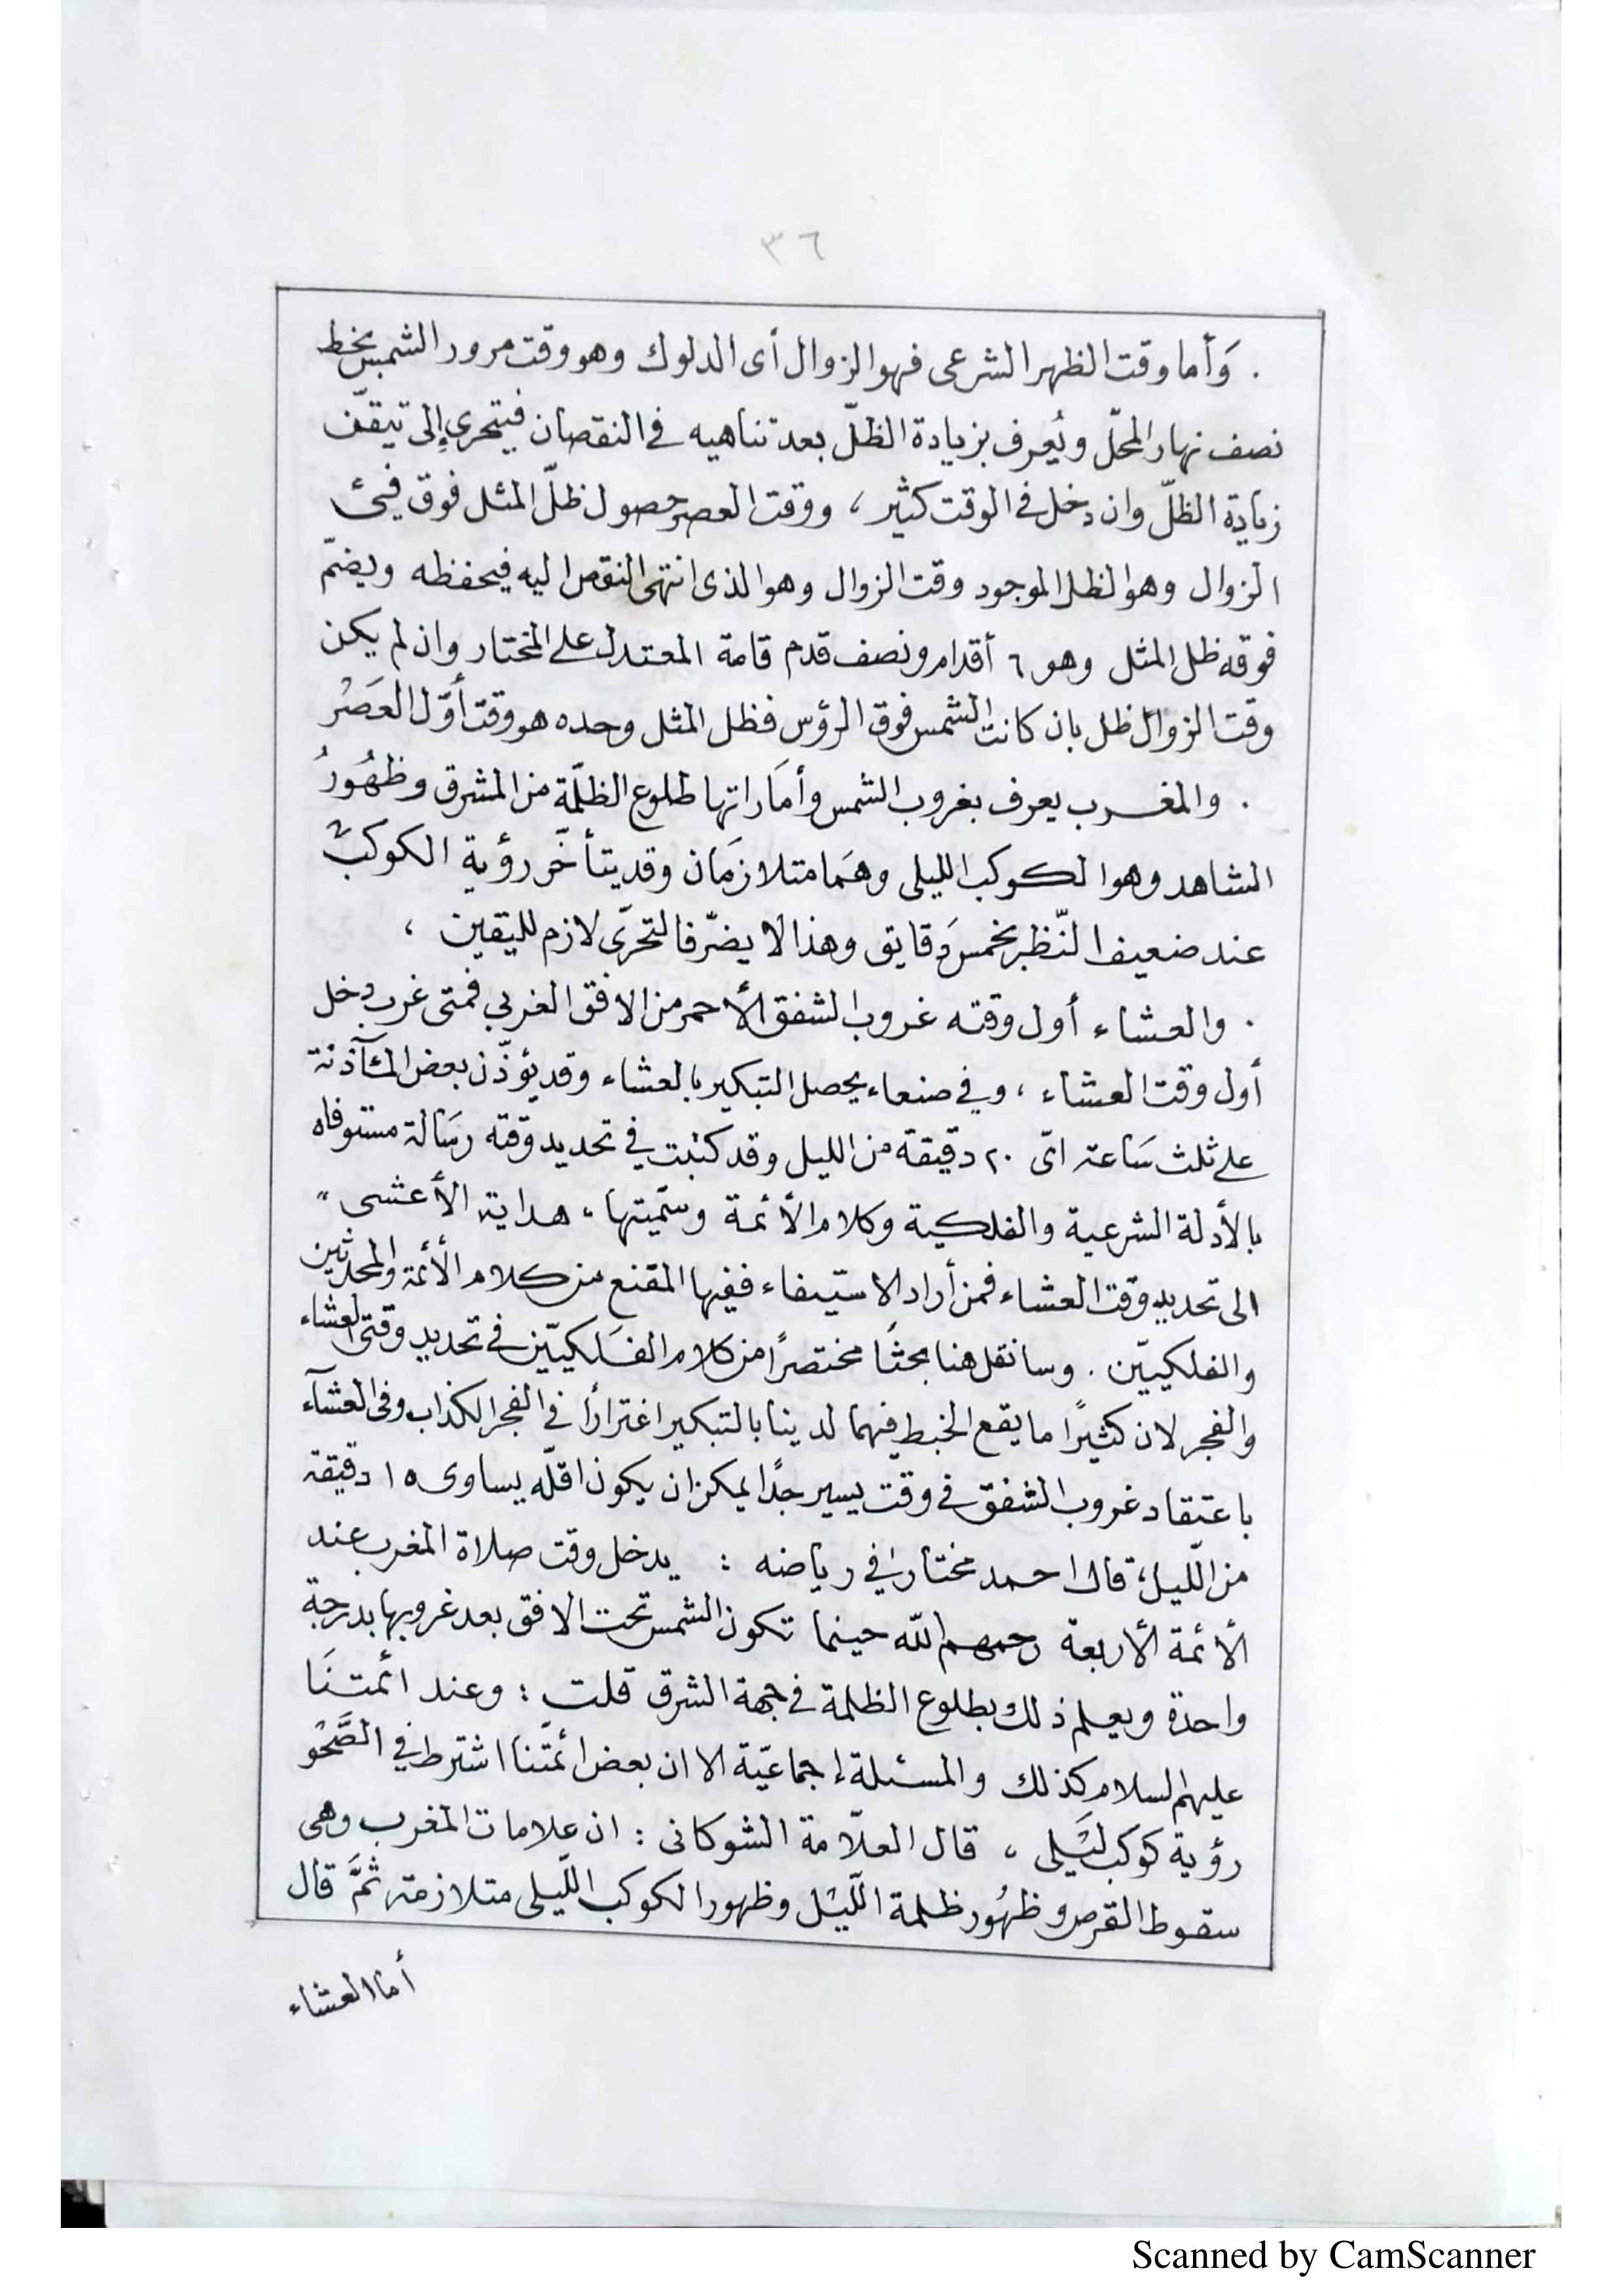 ٣٦
. وَأما وقت الظهر الشرعى فهو الزوال أى الدلوك وهو وقت مرور الشمس بخط
نصف نهار المحلّ ويُعرف بزيادة الظلّ بعد تناهيه فى النقصان فيتحرى إلى تيقّن
زيادة الظلّ وان دخل فى الوقت كثير ، ووقت العصر حصول ظلّ المثل فوق فيئ
الزوال وهو الظل الموجود وقت الزوال وهو الذى انتهى النقص اليه فيحفظه ويضمّ
فوقه ظل المثل وهو ٦ أقدام ونصف قدم قامة المعتدل على المختار وان لم يكن
وقت الزوال ظل بان كانت الشمس فوق الرؤس فظل المثل وحده هو وقت أوّل العَصْر
. والمغرب يعرف بغروب الشمس وأمَاراتها طلوع الظلّمة من المشرق وظهُورُ
الشاهد وهو الكوكب الليلى وهَما متلازمَان وقد يتأخّر رؤية الكوكب
عند ضعيف النّظر بخمسَ دقايق وهذا لا يضرّ فالتحرّى لازم لليقين ،
. والعشاء أول وقته غروب الشفق الأحمر من الافق الغربي فمتى غرب دخل
أول وقت العشاء ، وفي صنعاء يحصل التبكير بالعشاء وقد يؤذّن بعض المآذنة
على ثلث سَاعة اىّ ٢٠ دقيقة من الليل وقد كتبت في تحديد وقته رسَالة مستوفاه
بالأدلة الشرعية والفلكية وكلام الأئمة وسمّيتها " هداية الأعشى "
الى تحديد وقت العشاء فمن أراد الاستيفاء ففيها المقنع من كلام الأئمة والمحدثين
والفلكيّين . وسانقل هنا بحثًا مختصرًا من كلام الفلَكيّين فى تحديد وقتى العشاء
والفجر لان كثيرًا ما يقع الخبط فيهما لدينا بالتبكير اغترارًا فى الفجر الكذاب وفى العشآء
باعتقاد غروب الشفق فى وقت يسير جدًا يمكن ان يكون اقلّه يساوى ١٥ دقيقة
من اللّيل ، قال احمد مختار في رياضه : يدخل وقت صلاة المغرب عند
الأئمة الأربعة رحمهم الله حينما تكون الشمس تحت الافق بعد غروبها بدرجة
واحدة ويعلم ذلك بطلوع الظلمة فى جهة الشرق قلت : وعند ائمتنَا
عليهم السلام كذلك والمسئلة إجماعيّة الا ان بعض ائمّتنا اشترط في الصَّحْو
رؤية كوكب لَيْلى ، قال العلاّمة الشوكانى : ان علامات المغرب وهى
سقوط القرص وظهُور ظلمة اللّيْل وظهور الكوكب اللّيلى متلازمة ثمَّ قال
أما العشاء
Scanned by CamScanner